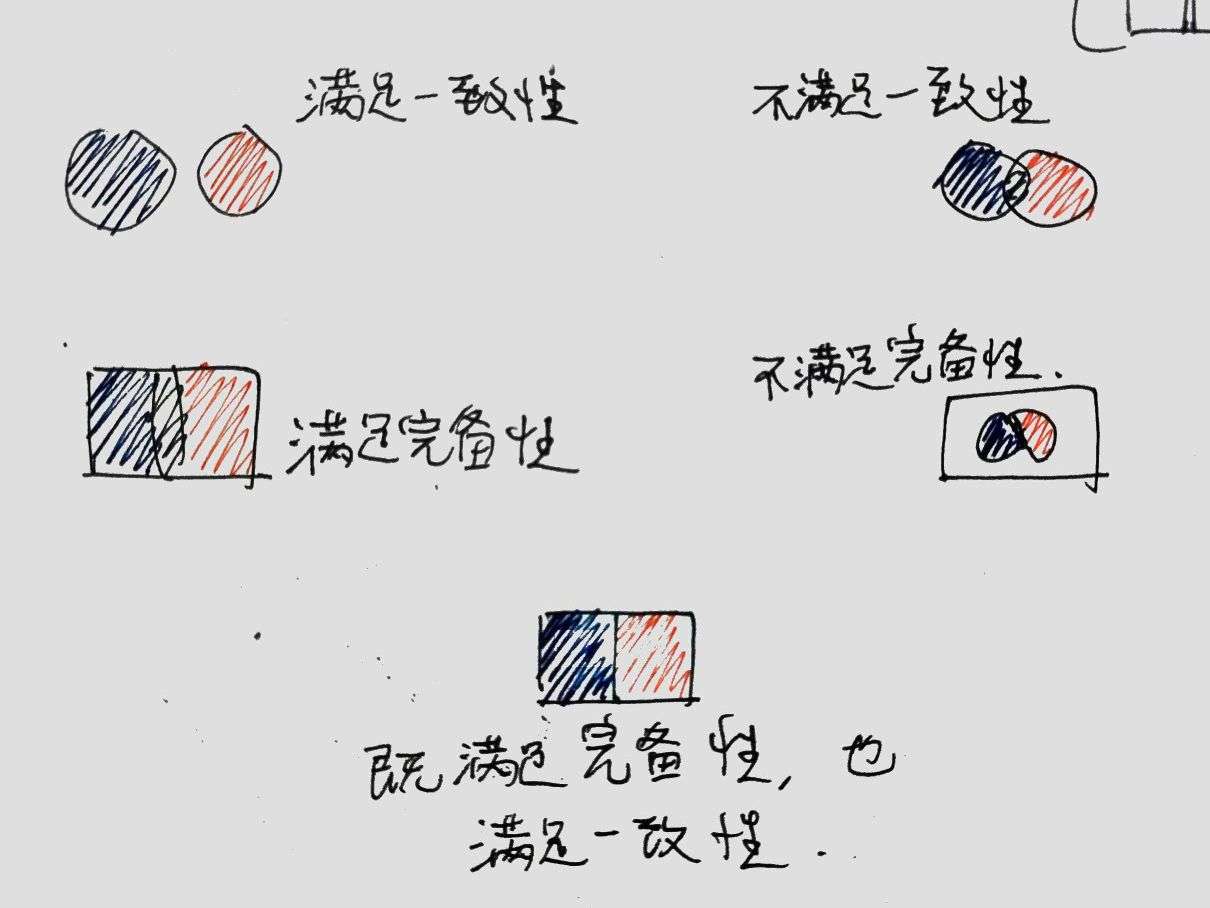 满足一致性
不满足一致性
不满足完备性.
满足完备性
既满足完备性,也
满足一致性.